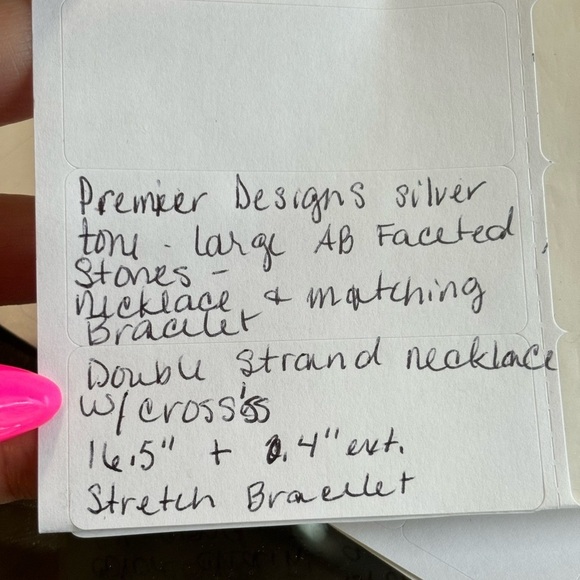 Premier Designs silver
tone - large AB Faceted
Stones -
Necklace & matching
Bracelet
Double Strand necklace
w/ cross's
16.5" + 2.4" ext.
Stretch Bracelet